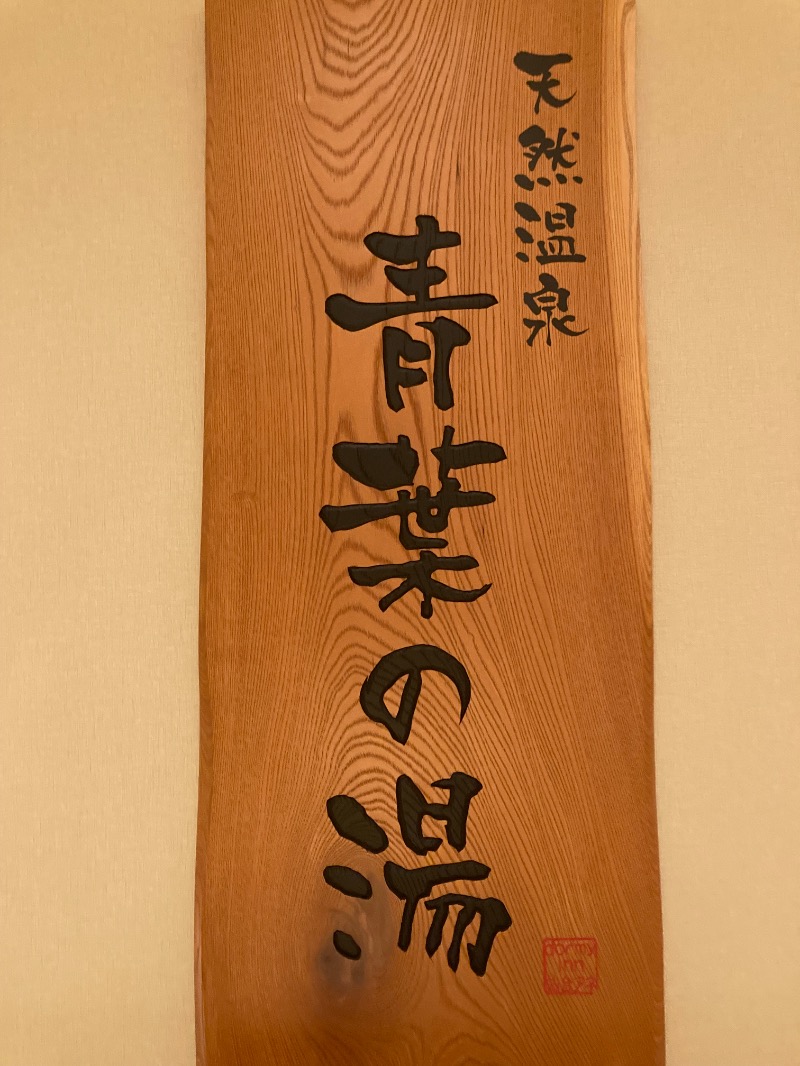 天然温泉
青葉の湯
dormy
inn